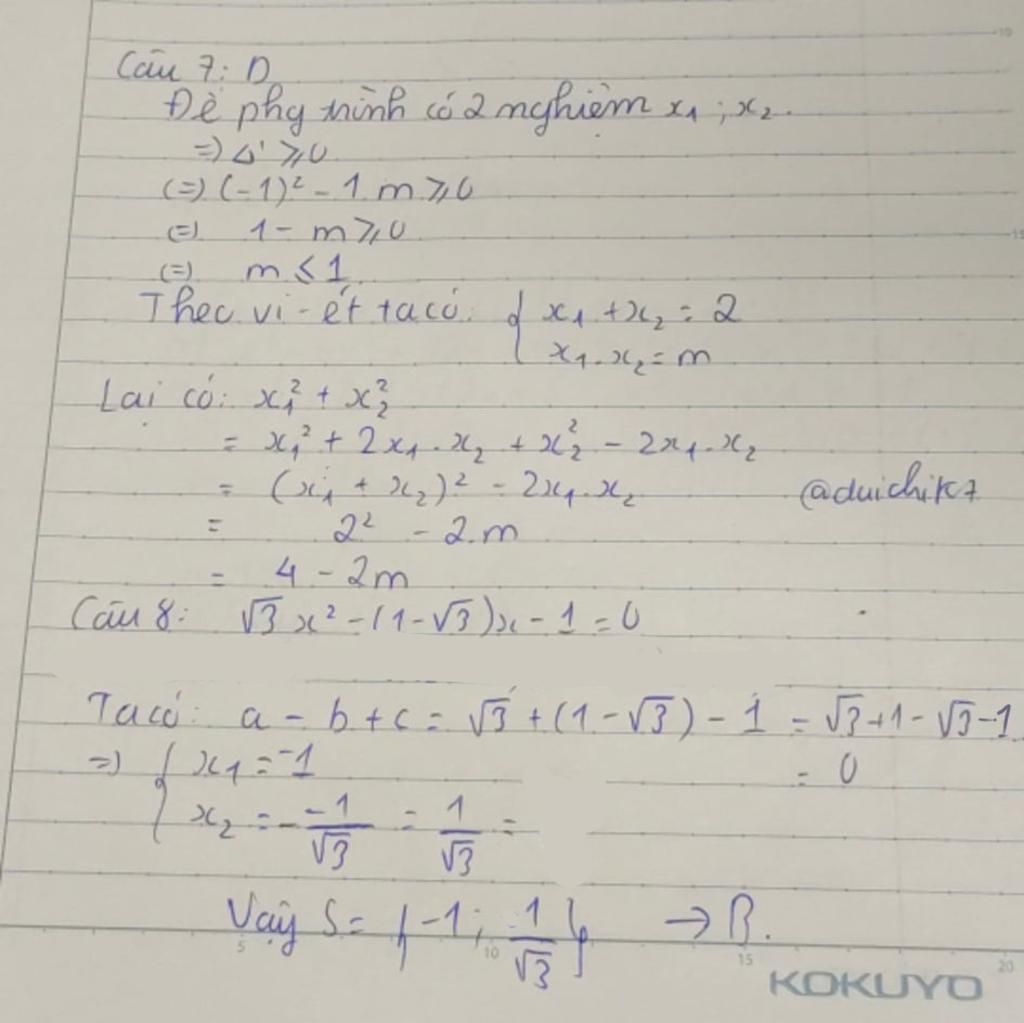 Câu 7: D
Để phg trình có 2 nghiệm x₁ ; x₂.
=) Δ' ≥ 0
(=) (-1)² - 1. m ≥ 0
(=) 1 - m ≥ 0
(=) m ≤ 1
Theo vi-ét ta có: { x₁ + x₂ = 2
x₁. x₂ = m
Lại có: x₁² + x₂²
= x₁² + 2x₁. x₂ + x₂² - 2x₁. x₂
= (x₁ + x₂)² - 2x₁. x₂ @duichik7
= 2² - 2.m
= 4 - 2m
Câu 8: √3 x² - (1-√3)x - 1 = 0
Ta có: a - b + c = √3 + (1 - √3) - 1 = √3 + 1 - √3 - 1
= 0
=) { x₁ = -1
x₂ = - -1/√3 = 1/√3 =
Vậy S = { -1; 1/√3 } → B.
5 10 15 20
KOKUYO